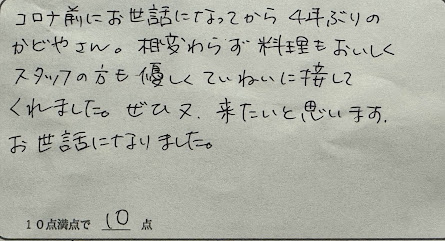 コロナ前にお世話になってから4年ぶりの
かどやさん。相変わらず料理もおいしく
スタッフの方も優しくていねいに接して
くれました。ぜひ又、来たいと思います.
お世話になりました。
10点満点で 10 点